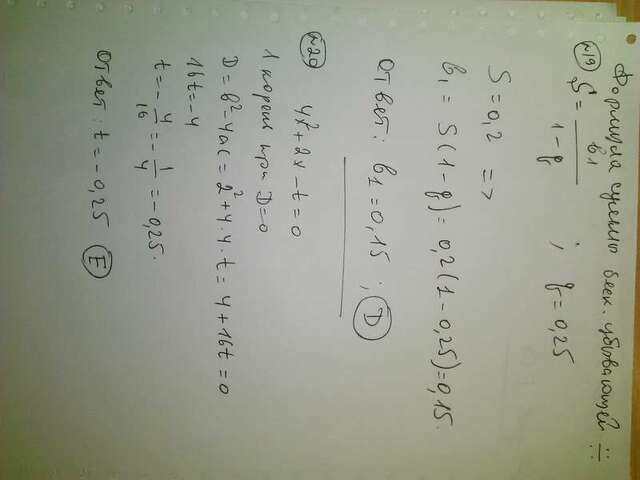 Формула суммы беск. убывающей ∺
№19
S = b₁ / (1 - q) ; q = 0,25
S = 0,2 =>
b₁ = S(1 - q) = 0,2(1 - 0,25) = 0,15.
Ответ: b₁ = 0,15 ; D
№20 4x² + 2x - t = 0
1 корень при D = 0
D = b² - 4ac = 2² + 4·4·t = 4 + 16t = 0
16t = -4
t = - 4/16 = - 1/4 = -0,25.
Ответ: t = -0,25 E